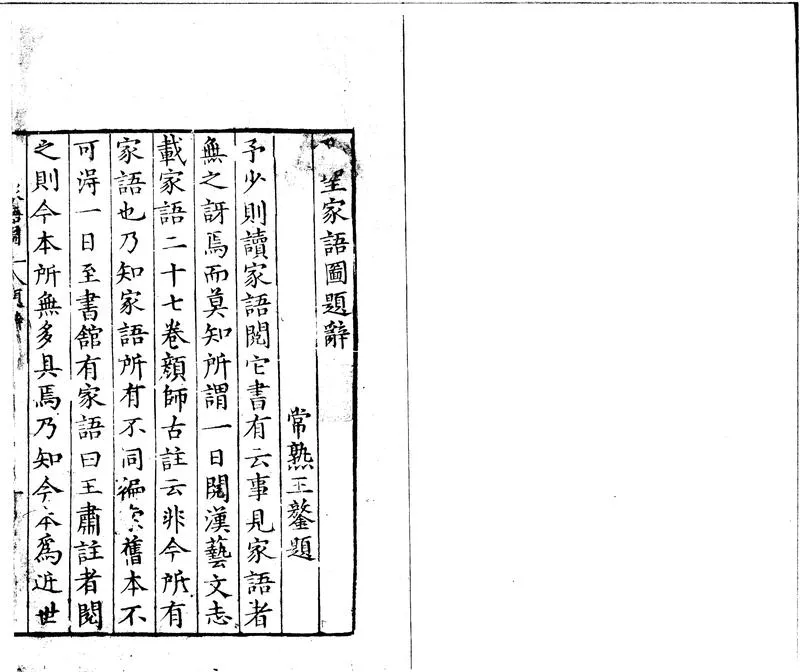 聖家語圖題辭
常熟王鏊題
予少則讀家語閱它書有云事見家語者
無之訝焉而莫知所謂一日閱漢藝文志
載家語二十七卷顏師古註云非今所有
家語也乃知家語所有不同徧舊本不
可淂一日至書舘有家語曰王肅註者閱
之則今本所無多具焉乃知今本爲近世